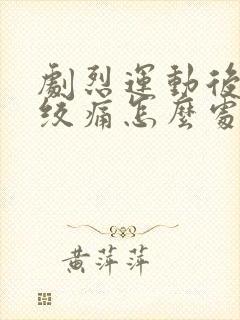 劇烈運動後
绞痛怎麼處
黃萍萍